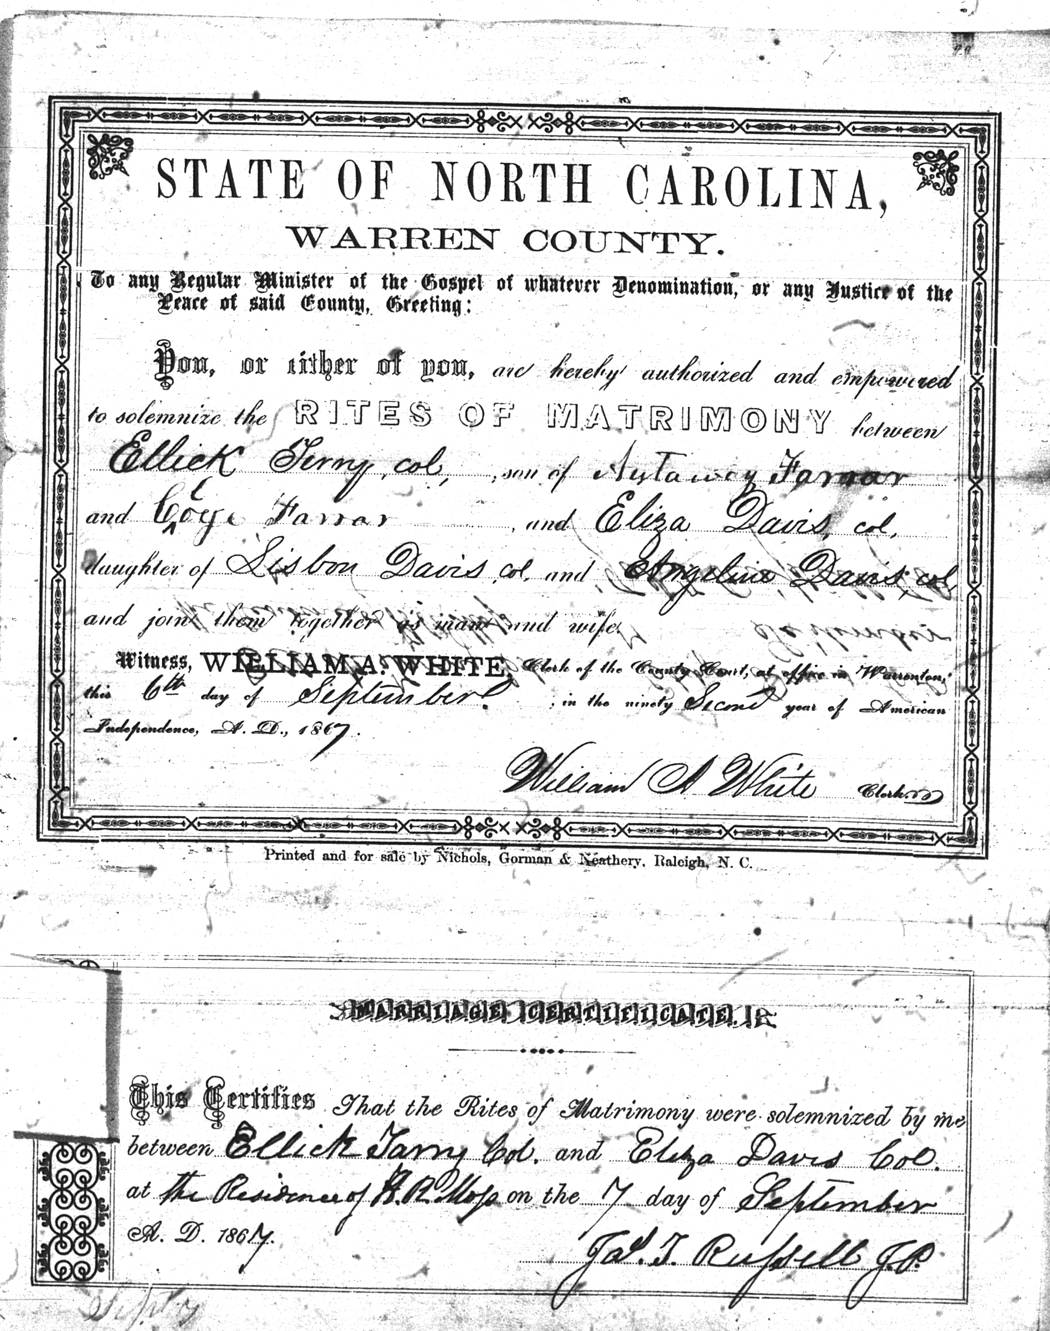 STATE OF NORTH CAROLINA,
WARREN COUNTY.
To any Regular Minister of the Gospel of whatever Denomination, or any Justice of the
Peace of said County, Greeting:
You, or either of you, are hereby authorized and empowered
to solemnize the RITES OF MATRIMONY between
Ellick Terry, col, , son of Farrar
and Farrar , and Eliza Davis, col,
daughter of Lisbon Davis, col, and Angeline Davis col
and join them together as man and wife
Witness, WILLIAM A. WHITE, Clerk of the County Court, at office in Warrenton,
this 6th day of September ; in the ninety Second year of American
Independence, A. D., 1867.
William A White Clerk
Printed and for sale by Nichols, Gorman & Neathery, Raleigh, N. C.
MARRIAGE CERTIFICATE.
This Certifies That the Rites of Matrimony were solemnized by me
between Ellick Tarry Col. and Eliza Davis Col.
at the Residence of R. Moss on the 7 day of September
A. D. 1867.
Jas. T. Russell J.P.
Sept 7